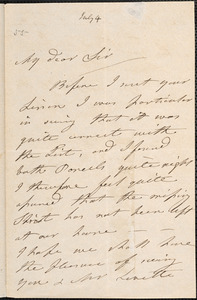 July 4
My dear Sir
Before I sent your
Linen I was particular
in seeing that it was
quite correct with
the List, and I found
both Parcels quite right
I therefore feel quite
assured that the missing
Shirt has not been left
at our house
I hope we shall have
the pleasure of seeing
you & Mrs